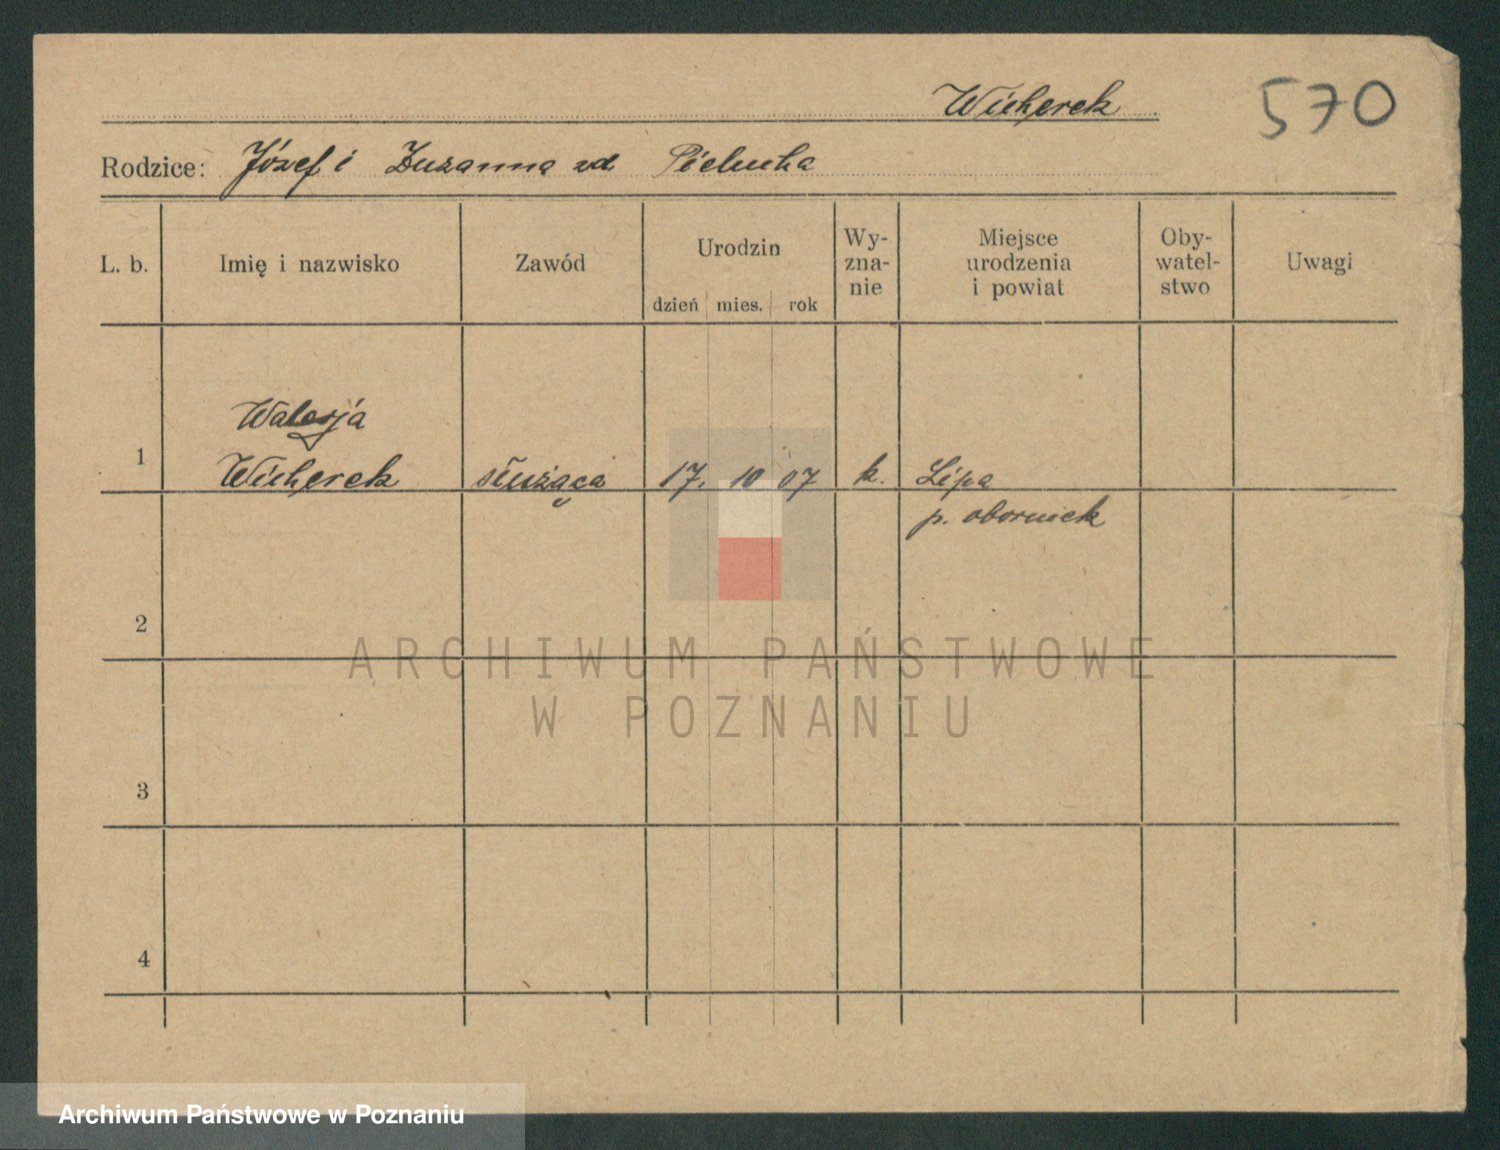 Wicherek 570
Rodzice: Józef i Zuzanna zd Pielucha
L. b. Imię i nazwisko Zawód Urodzin dzień mies. rok Wy-zna-nie Miejsce urodzenia i powiat Oby-watel-stwo Uwagi
Walerja
1 Wicherek służąca 17. 10 07 k. Lipa
p. obornick
2
ARCHIWUM PAŃSTWOWE
W POZNANIU
3
4
Archiwum Państwowe w Poznaniu